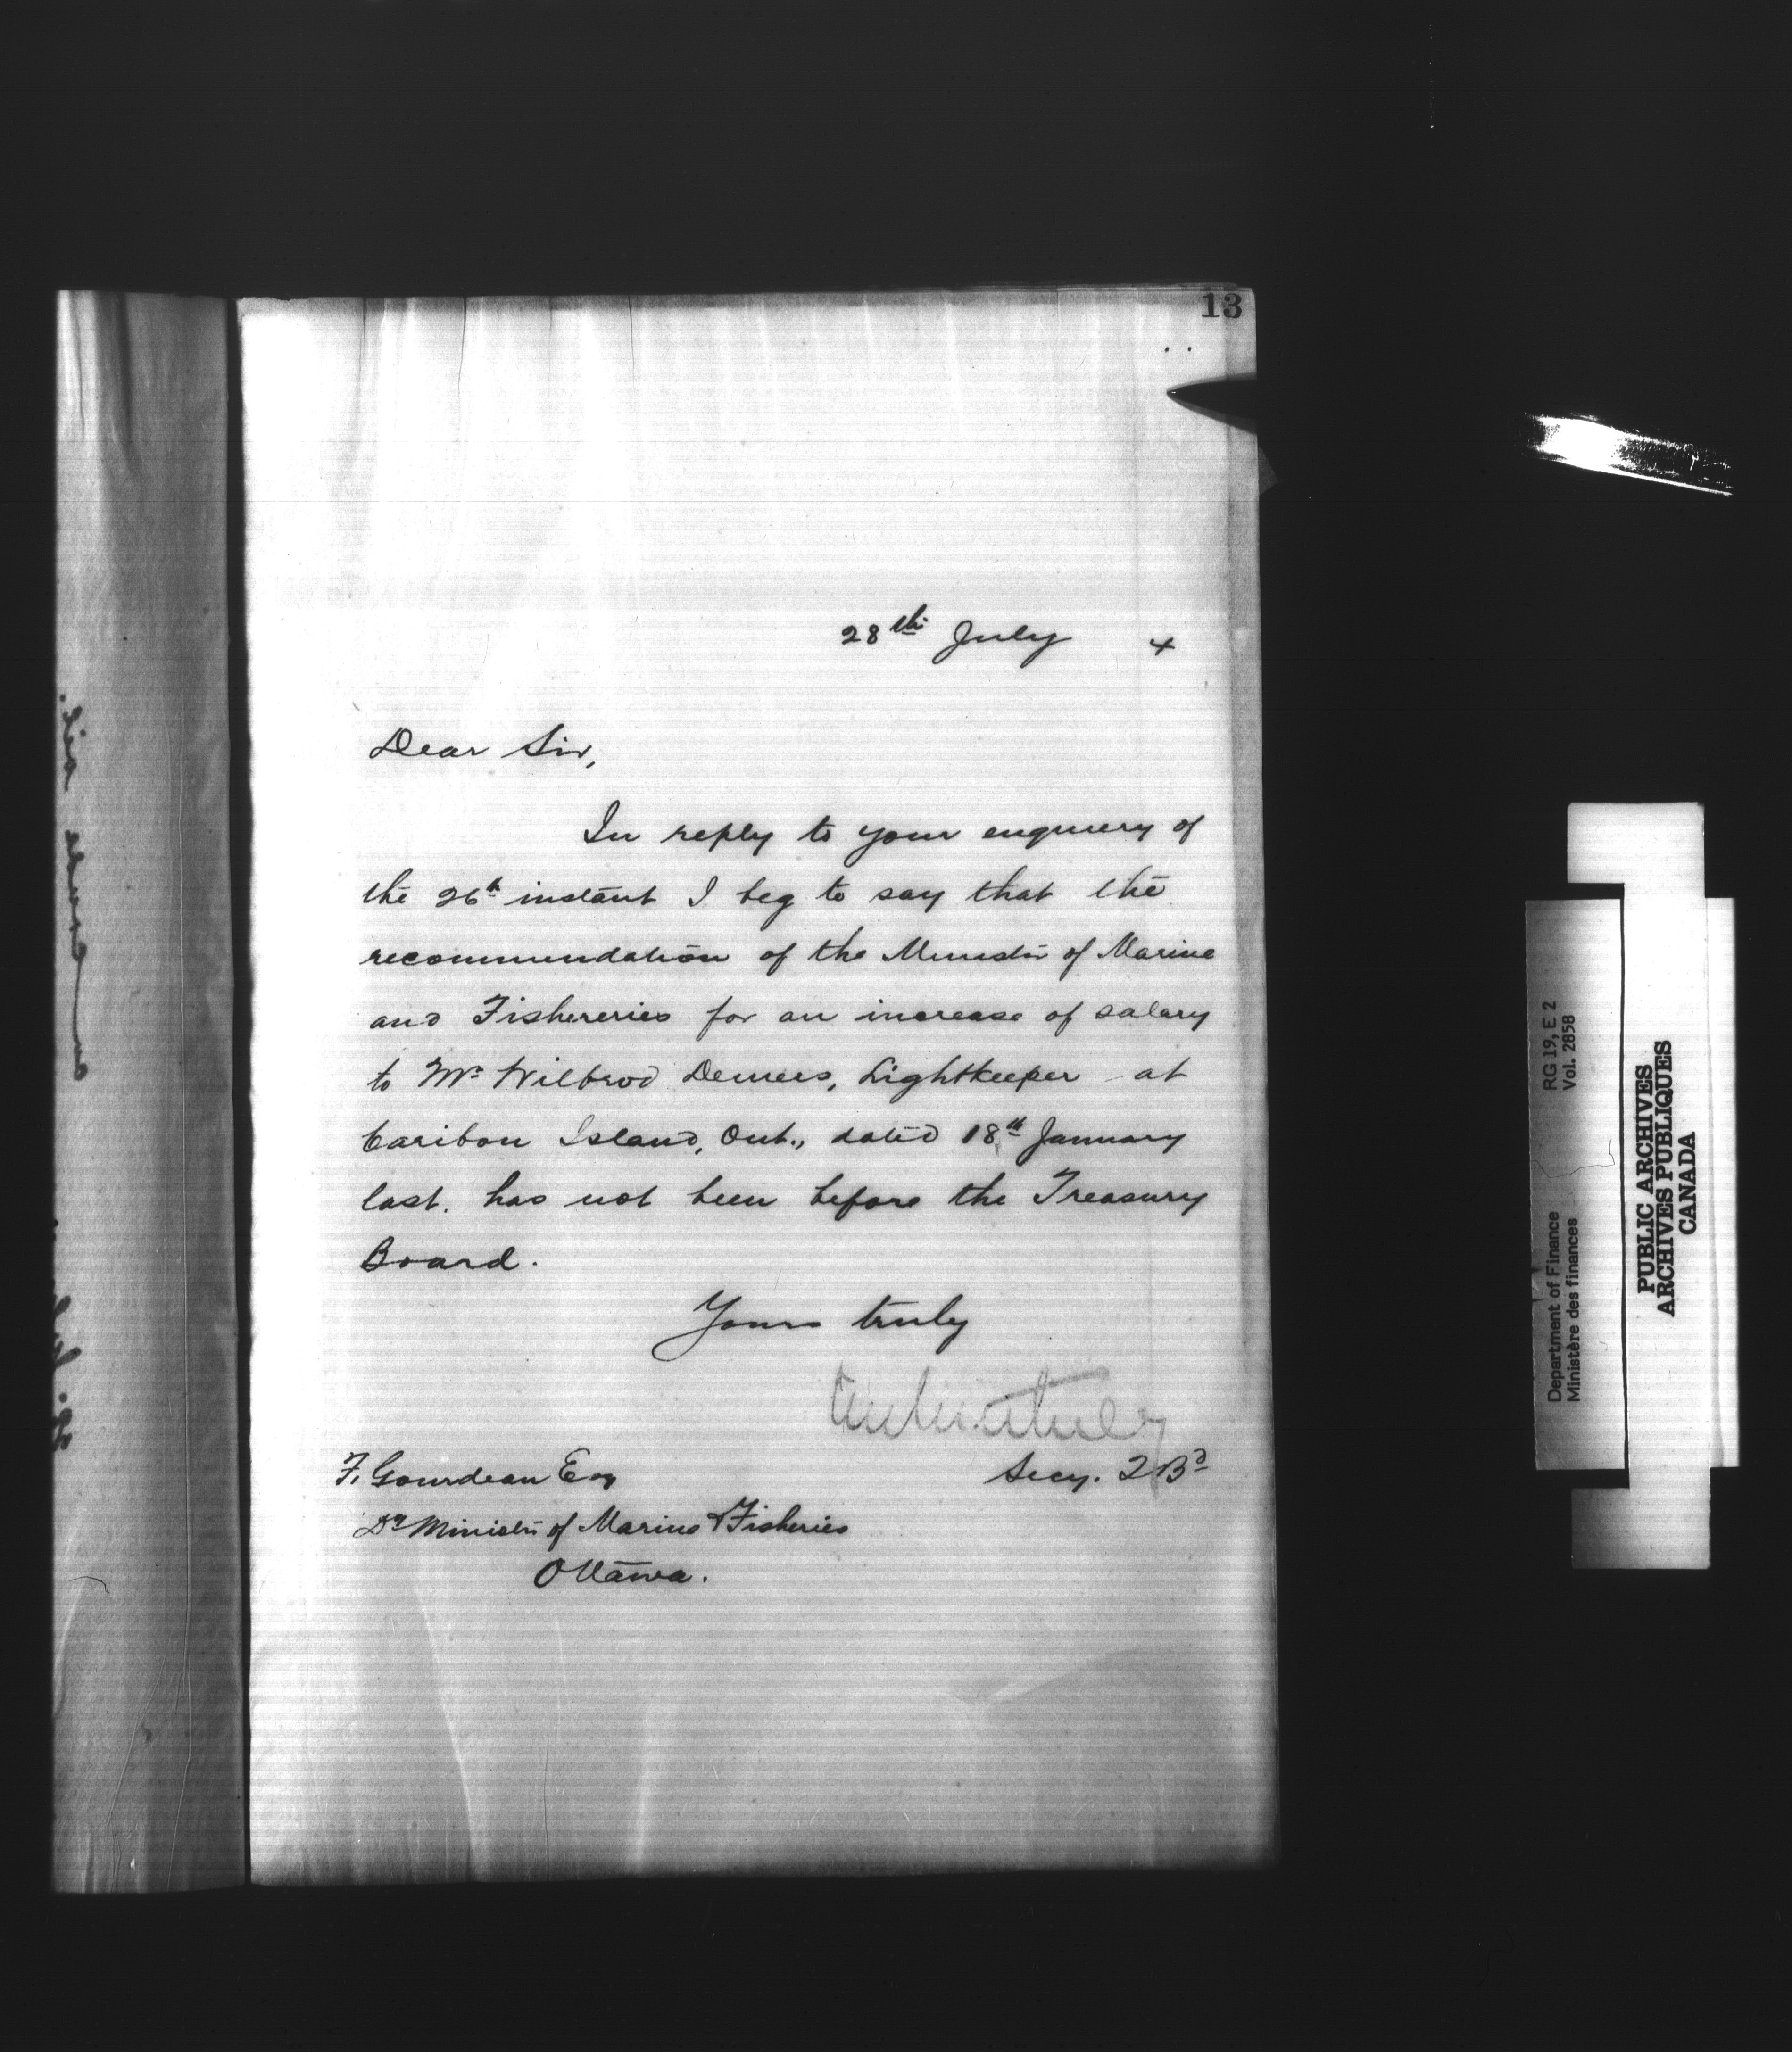 13
28th July 4
Dear Sir,
In reply to your enquiery of
the 26th instant I beg to say that the
recommendation of the Minister of Marine
and Fishereries for an increase of salary
to Mr Wilbrod Demers, Lightkeeper at
Caribou Island, Ont., dated 18th January
last. has not been before the Treasury
Board.
Yours truly
Secy. T Bd
F. Gourdeau Esq
Dy Minister of Marine & Fisheries
Ottawa.
RG 19, E 2
Vol. 2858
Department of Finance
Ministère des finances
PUBLIC ARCHIVES
ARCHIVES PUBLIQUES
CANADA